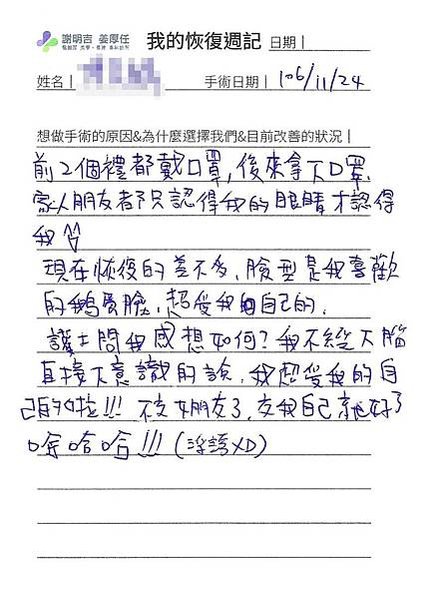 謝明吉 姜厚任
我的恢復週記 日期|
姓名| 手術日期| 106/11/24
想做手術的原因&為什麼選擇我們&目前改善的狀況|
前2個禮都戴口罩,後來拿下口罩.
家人朋友都只認得我的眼睛才認得
我
現在恢復的差不多,臉型是我喜歡
的鵝蛋臉,超愛我自己的.
護士問我感想如何?我不經大腦
直接下意識的說,我超愛我的自
己的啦!!!不交女朋友了,交我自己就好了
哈哈哈!!!(浮誇XD)